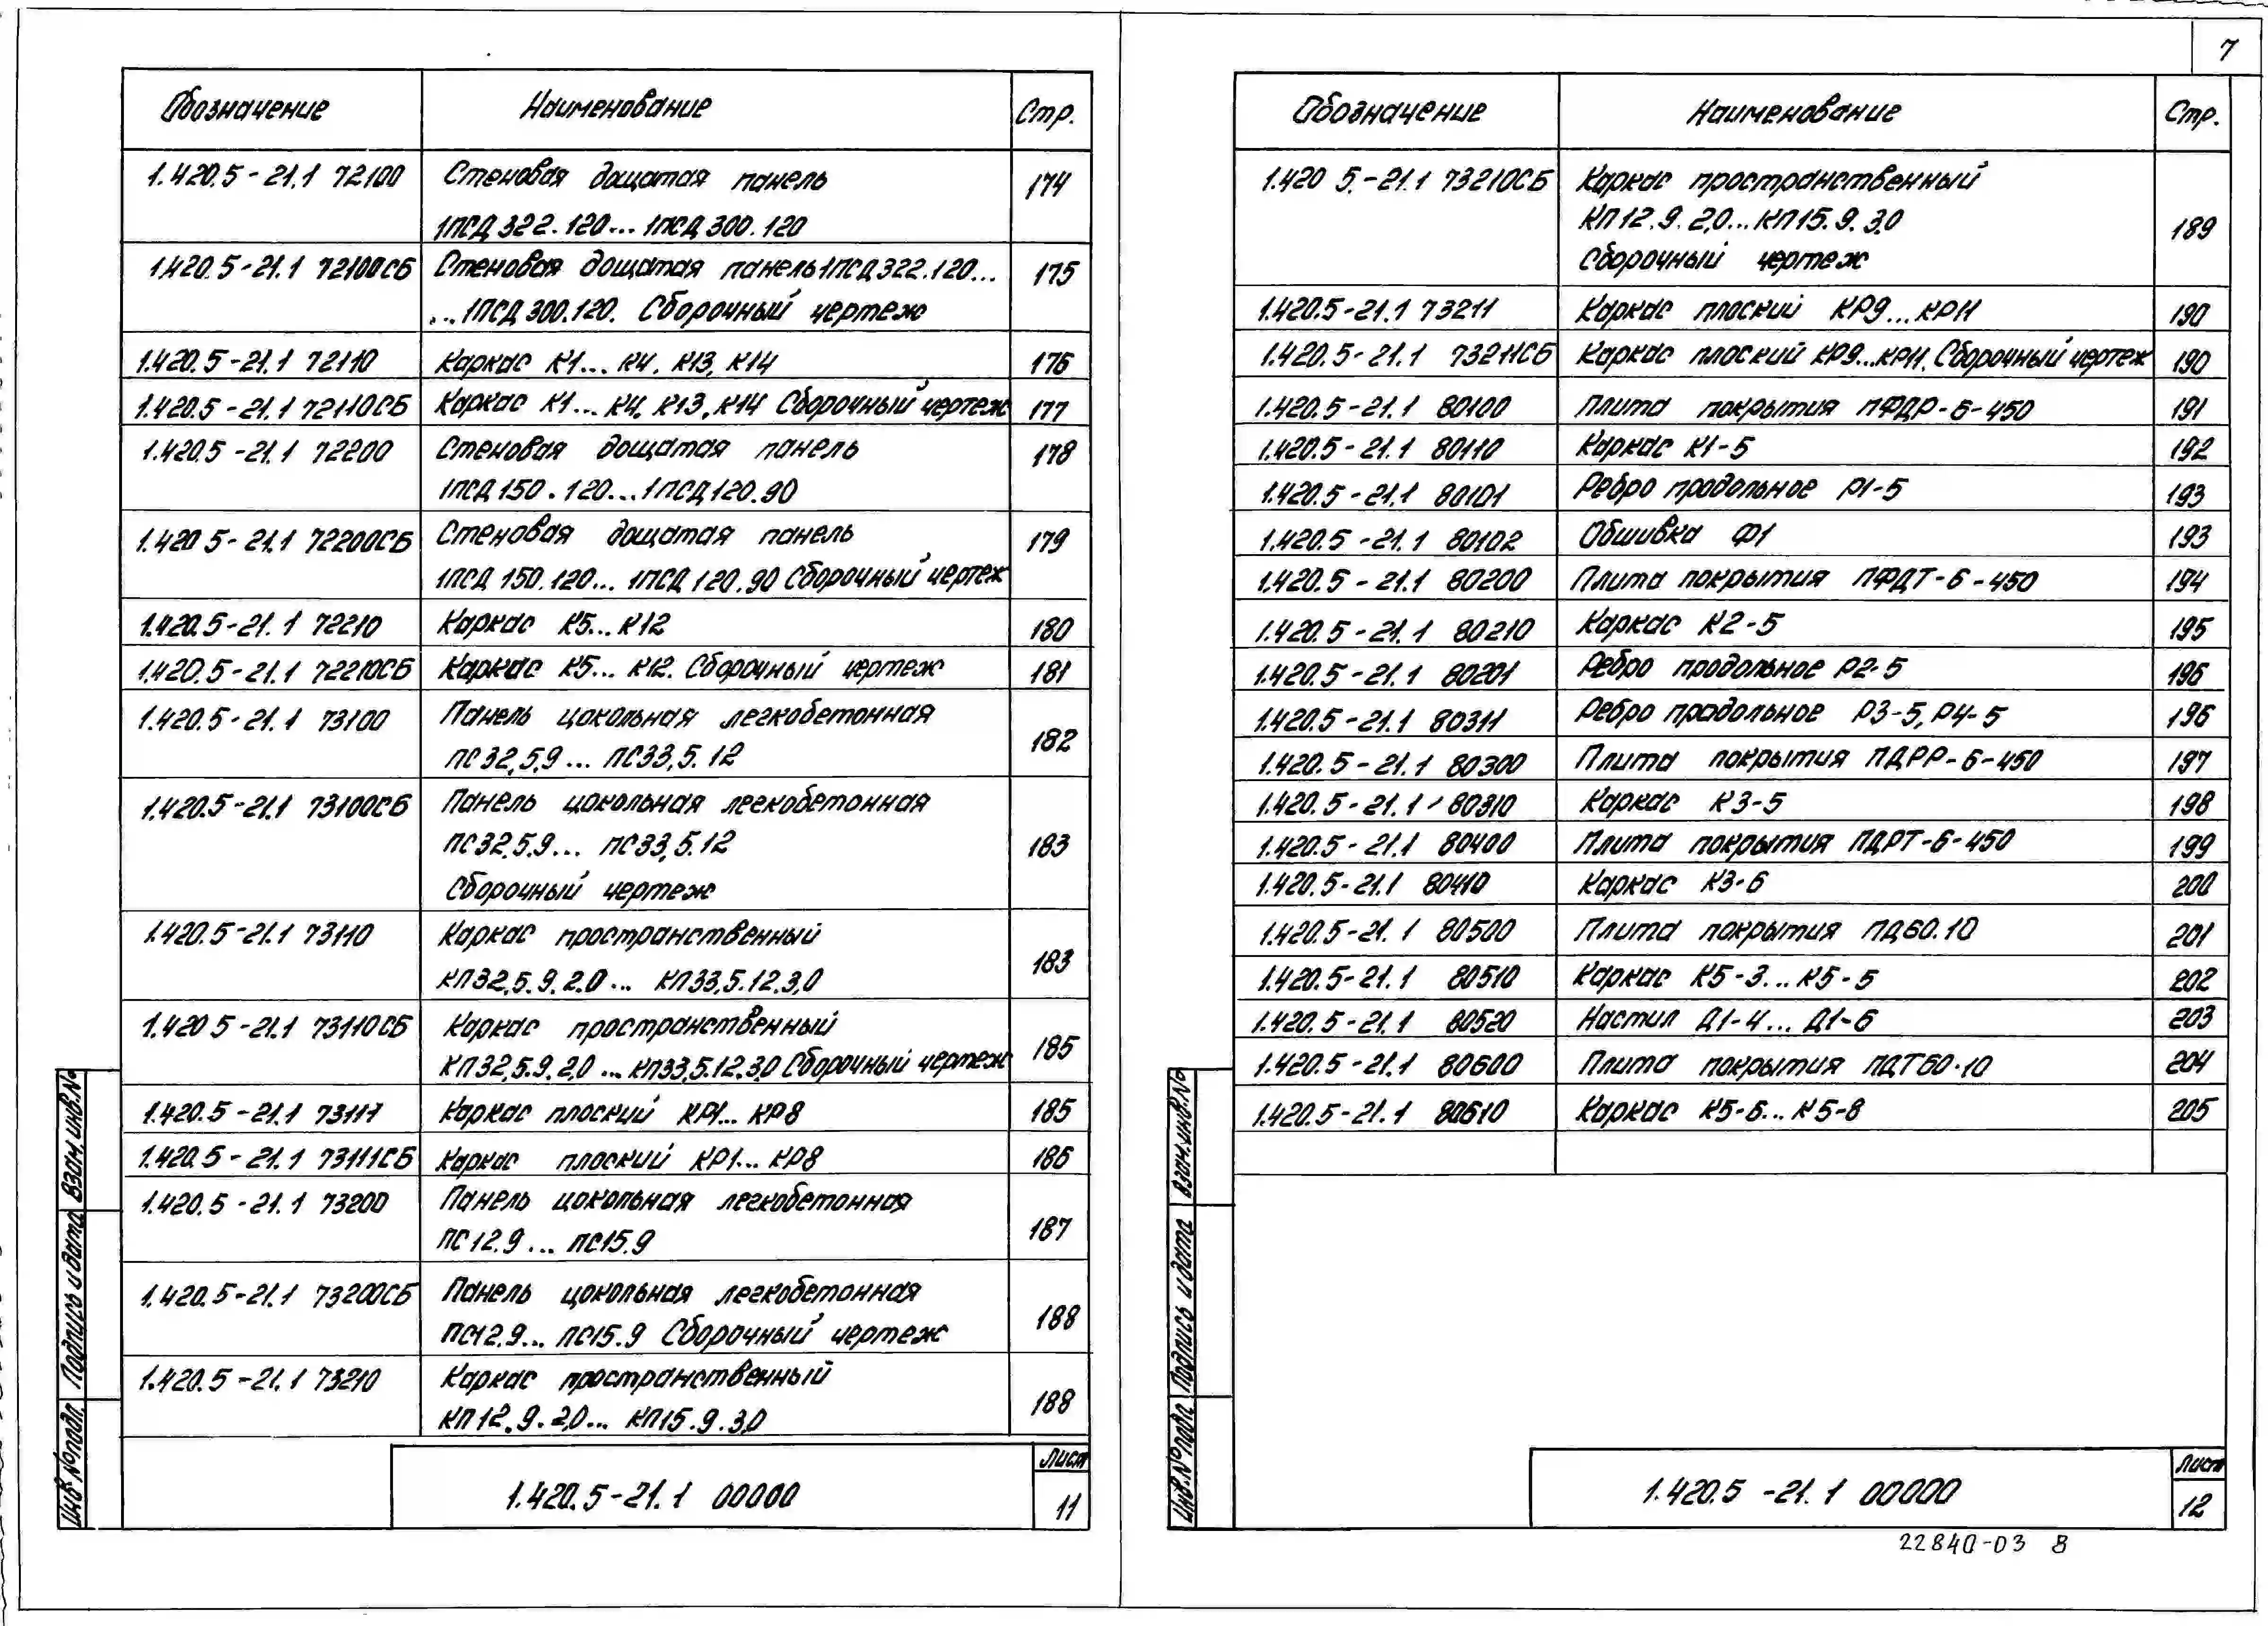 7
Обозначение Наименование Стр.
1.420.5-21.1 72100 Стеновая дощатая панель 174
1ПСД 322.120... 1ПСД 300.120
1.420.5-21.1 72100СБ Стеновая дощатая панель 1ПСД 322.120... 175
...1ПСД 300.120. Сборочный чертеж
1.420.5-21.1 72110 Каркас К1... К4. К13, К14 176
1.420.5-21.1 72110СБ Каркас К1... К4, К13, К14 Сборочный чертеж 177
1.420.5-21.1 72200 Стеновая дощатая панель 178
1ПСД 150.120...1ПСД 120.90
1.420 5-21.1 72200СБ Стеновая дощатая панель 179
1ПСД 150.120... 1ПСД 120.90 Сборочный чертеж
1.420.5-21.1 72210 Каркас К5...К12 180
1.420.5-21.1 72210СБ Каркас К5... К12. Сборочный чертеж 181
1.420.5-21.1 73100 Панель цокольная легкобетонная 182
ПС 32,5,9... ПС33,5.12
1.420.5-21.1 73100СБ Панель цокольная легкобетонная 183
ПС32,5.9... ПС33,5.12
Сборочный чертеж
1.420.5-21.1 73110 Каркас пространственный 183
КП32,5.9.2.0... КП33,5.12.3,0
1.420 5-21.1 73110СБ Каркас пространственный 185
КП32,5.9.2,0 ...КП33,5.12.3,0 Сборочный чертеж
1.420.5-21.1 73111 Каркас плоский КР1... КР8 185
1.420.5-21.1 73111СБ Каркас плоский КР1... КР8 186
1.420.5-21.1 73200 Панель цокольная легкобетонная 187
ПС12.9... ПС15.9
1.420.5-21.1 73200СБ Панель цокольная легкобетонная 188
ПС12.9... ПС15.9 Сборочный чертеж
1.420.5-21.1 73210 Каркас пространственный 188
КП12.9.2,0... КП15.9.3,0
Взам. инв.№
Подпись и дата
Инв №подл.
1.420.5-21.1 00000 Лист 11
Обозначение Наименование Стр.
1.420 5.-21.1 73210СБ Каркас пространственный 189
КП12.9.2,0...КП15.9.3,0
Сборочный чертеж
1.420.5-21.1 73211 Каркас плоский КР9...КР11 190
1.420.5-21.1 73211СБ Каркас плоский КР9...КР11. Сборочный чертеж 190
1.420.5-21.1 80100 Плита покрытия ПФДР-6-450 191
1.420.5-21.1 80110 Каркас К1-5 192
1.420.5-21.1 80101 Ребро продольное Р1-5 193
1.420.5-21.1 80102 Обшивка Ф1 193
1.420.5-21.1 80200 Плита покрытия ПФДТ-6-450 194
1.420.5-21.1 80210 Каркас К2-5 195
1.420.5-21.1 80201 Ребро продольное Р2-5 196
1.420.5-21.1 80311 Ребро продольное Р3-5, Р4-5 196
1.420.5-21.1 80300 Плита покрытия ПДРР-6-450 197
1.420.5-21.1 80310 Каркас К3-5 198
1.420.5-21.1 80400 Плита покрытия ПДРТ-6-450 199
1.420.5-21.1 80410 Каркас К3-6 200
1.420.5-21.1 80500 Плита покрытия ПД60.10 201
1.420.5-21.1 80510 Каркас К5-3...К5-5 202
1.420.5-21.1 80520 Настил Д1-4... Д1-6 203
1.420.5-21.1 80600 Плита покрытия ПДТ60.10 204
1.420.5-21.1 80610 Каркас К5-6...К5-8 205
Взам.инв.№
Подпись и дата
Инв.№подл.
1.420.5-21.1 00000 Лист 12
22840-03 8